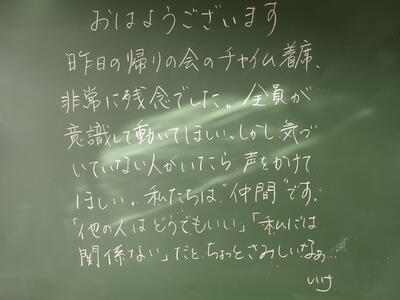 おはようございます
昨日の帰りの会のチャイム着席、
非常に残念でした。全員が
意識して動いてほしい。しかし気づ
いていない人がいたら声をかけて
ほしい。私たちは"仲間"です。
「他の人はどうでもいい」「私には
関係ない」だと、ちょっとさみしいなぁ…